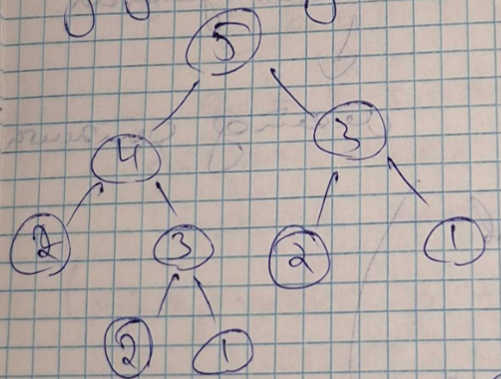 5
4 3
2 3 2 1
2 1